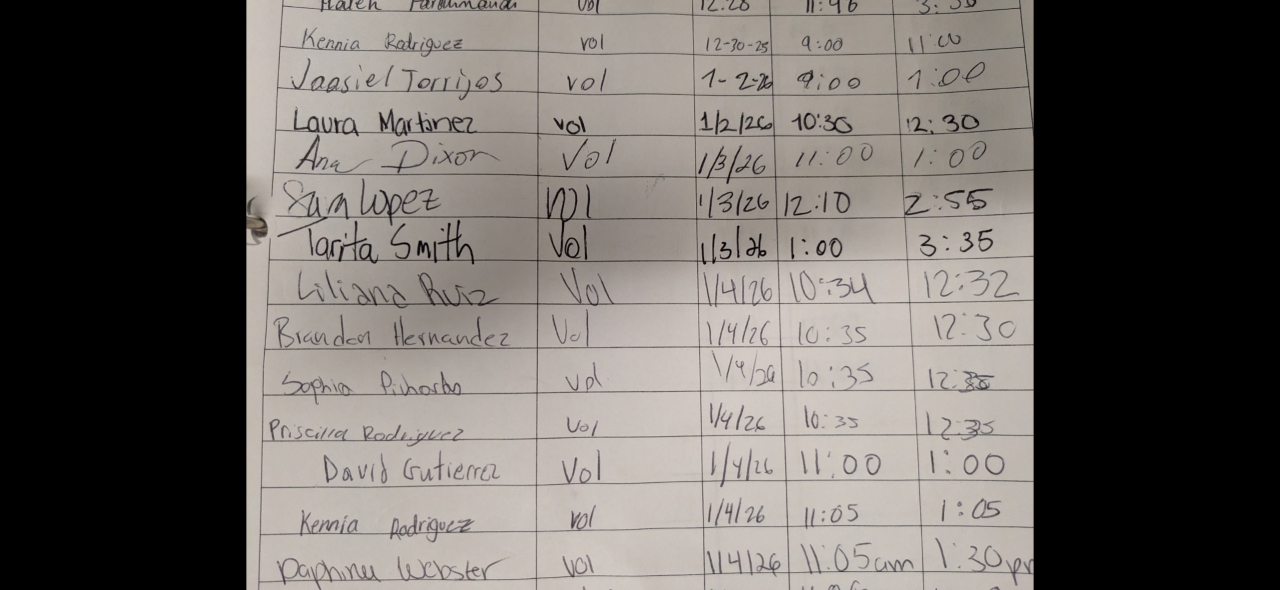 vol 12:28 11:46
Kennia Rodriguez vol 12-30-25 9:00 11:00
Jaasiel Torrijos vol 1-2-26 9:00 1:00
Laura Martinez vol 1/2/26 10:30 12:30
Ana Dixon Vol 1/3/26 11:00 1:00
Sam Lopez Vol 1/3/26 12:10 2:55
Tarita Smith Vol 1/3/26 1:00 3:35
Liliana Ruiz Vol 1/4/26 10:34 12:32
Brandon Hernandez Vol 1/4/26 10:35 12:30
Sophia vol 1/4/26 10:35
Priscilla Rodriguez Vol 1/4/26 10:35 12:35
David Gutierrez Vol 1/4/26 11:00 1:00
Kennia Rodriguez vol 1/4/26 11:05 1:05
Webster vol 1/4/26 11:05am 1:30